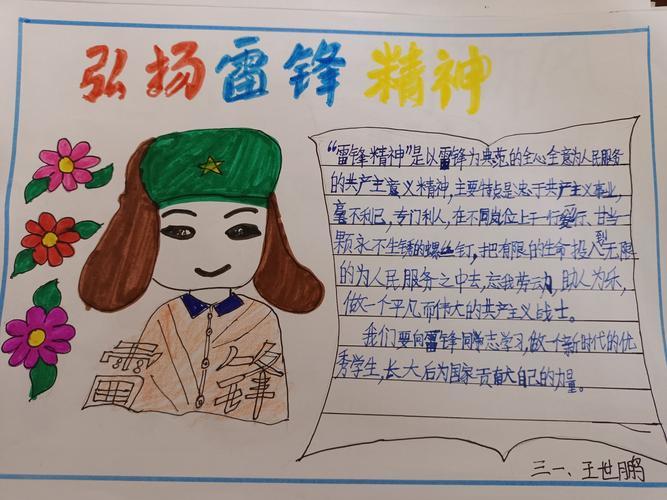 弘扬雷锋精神
“雷锋精神”是以雷锋为典范的全心全意为人民服务
的共产主义精神,主要特点是忠于共产主义事业,
毫不利己,专门利人,在不同岗位上干一行爱行、甘当一
颗永不生锈的螺丝钉,把有限的生命投入到无限
的为人民服务之中去,忘我劳动,助人为乐,
做一个平凡而伟大的共产主义战士。
我们要向雷锋同志学习,做一个新时代的优
秀学生,长大后为国家贡献自己的力量。
雷锋
三一、王世鹏